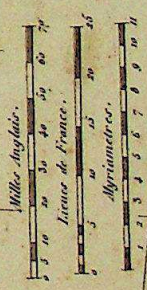 Milles Anglais.
0 5 10 20 30 40 50 60 70
Lieues de France.
0 5 10 15 20 25
Myriametres.
1 2 3 4 5 6 7 8 9 10 11